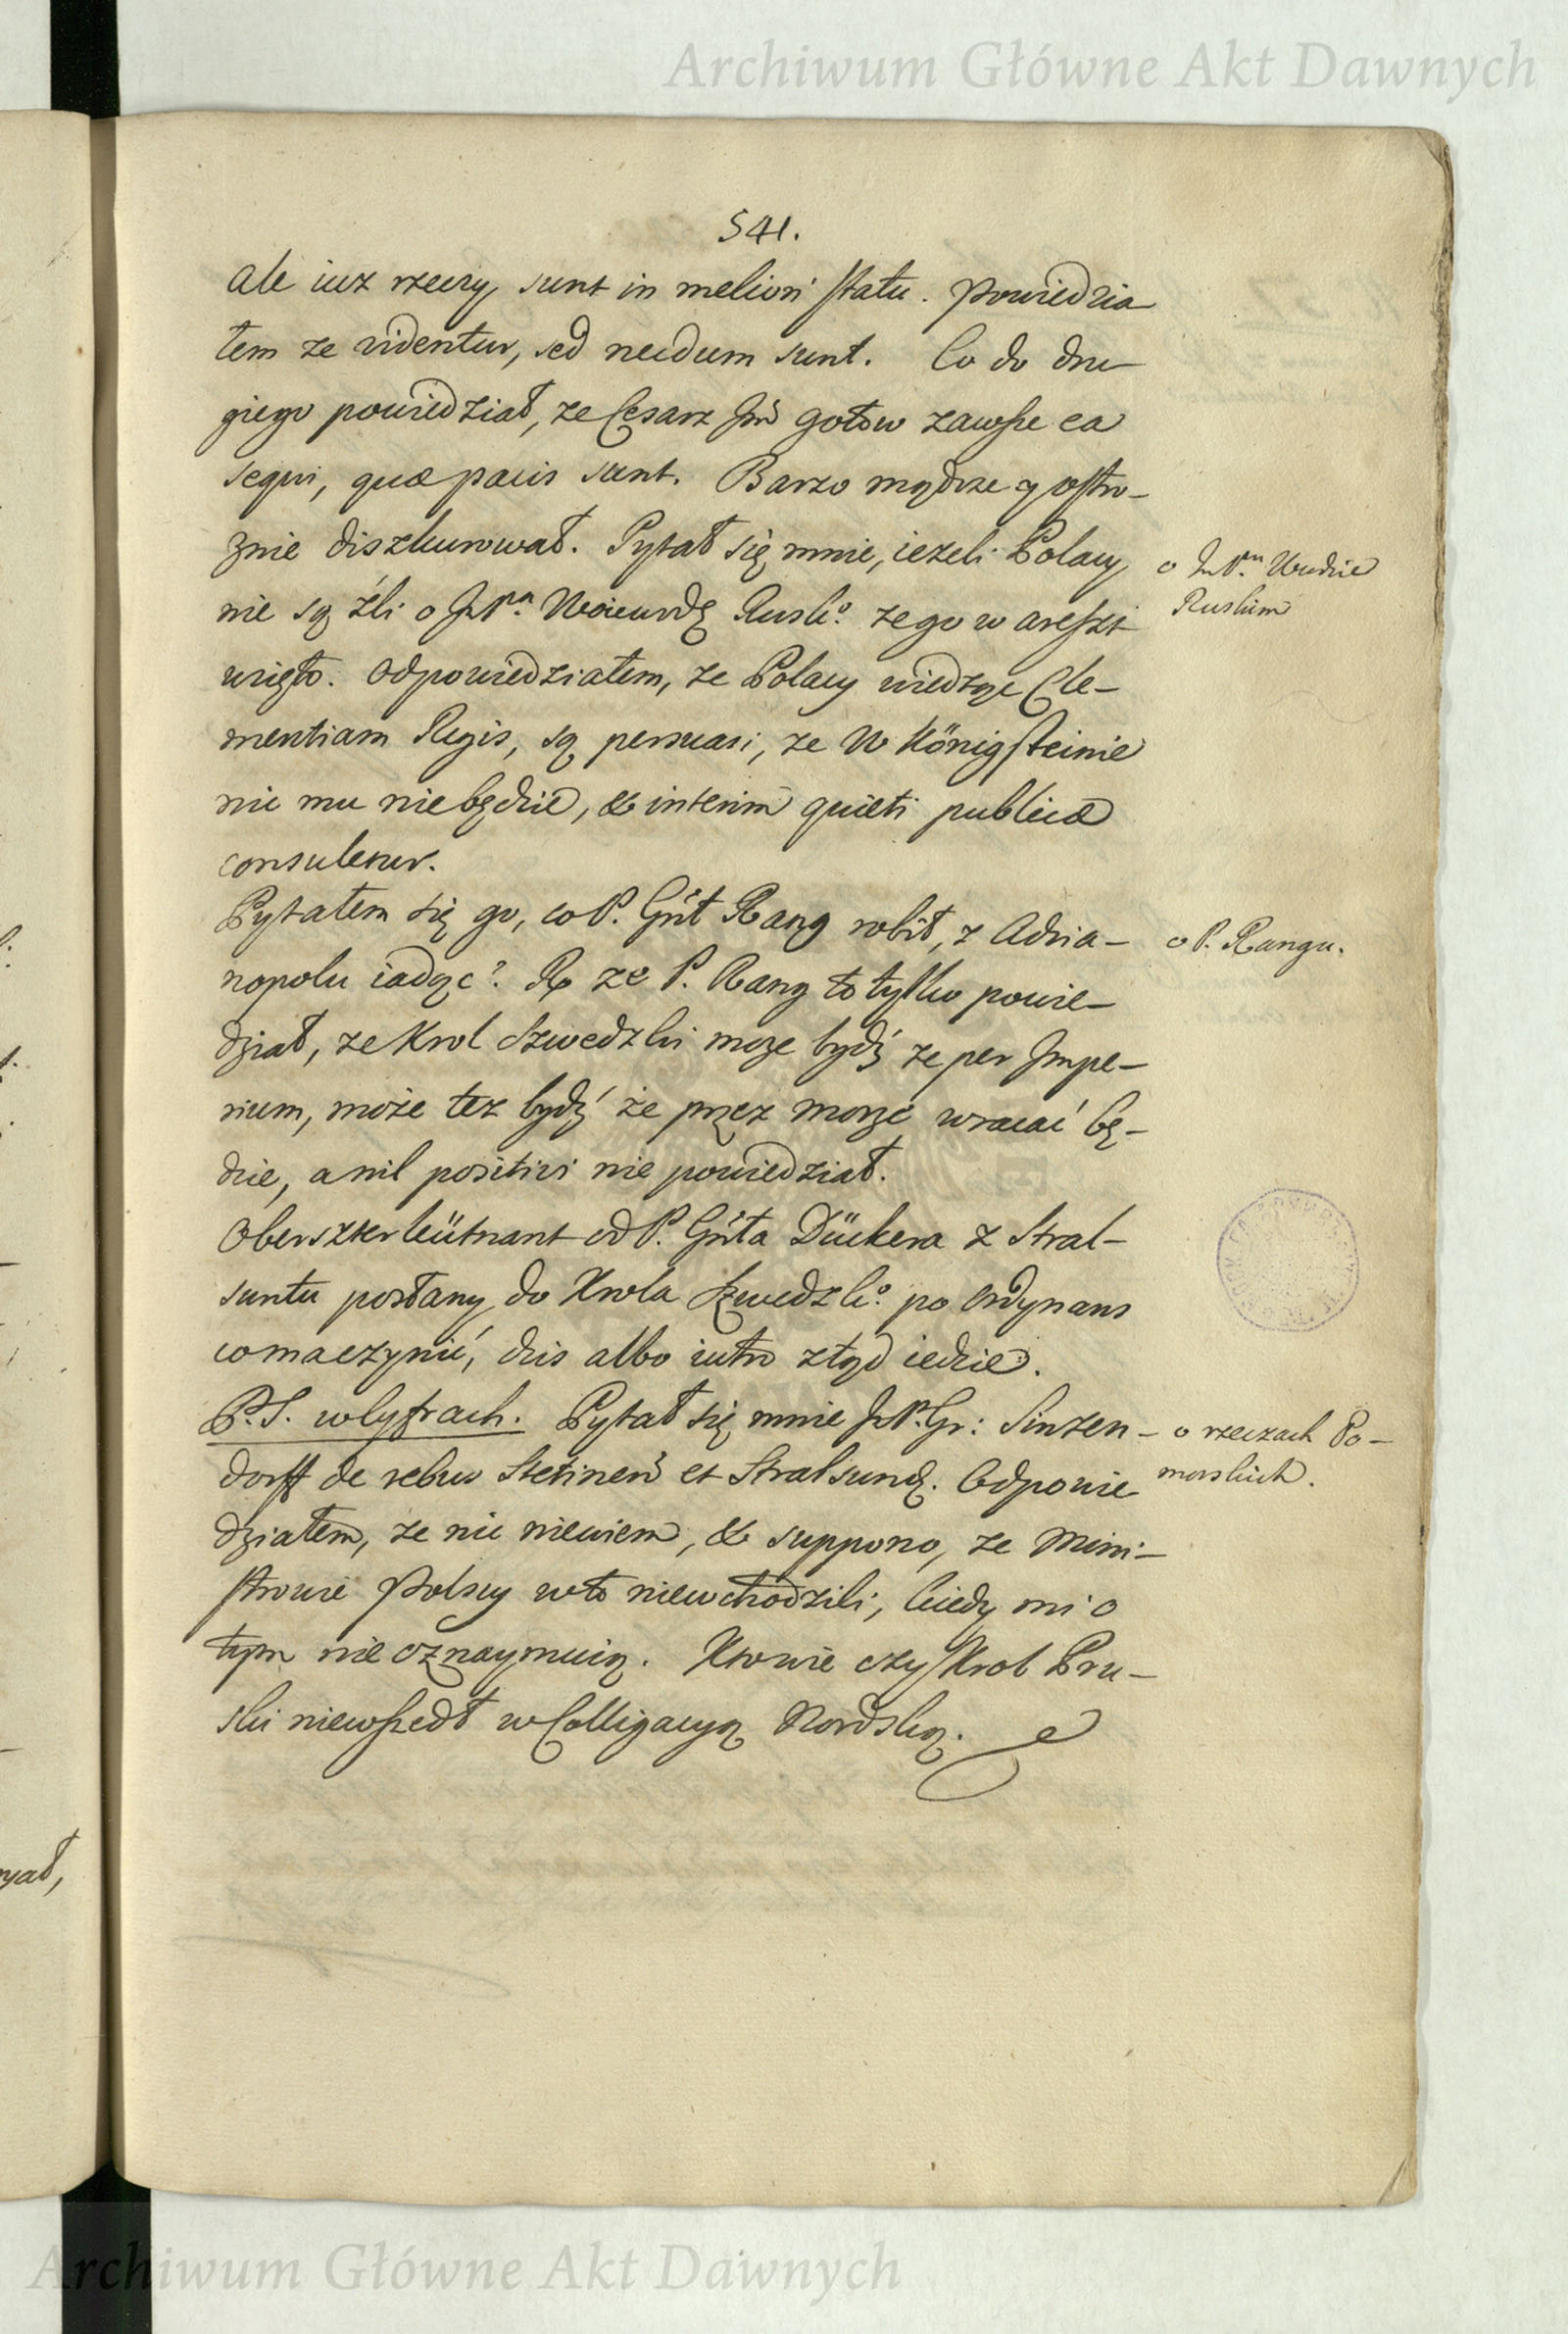 Archiwum Główne Akt Dawnych
541.
ale iuz rzeczy sunt in meliori statu. Powiedzia
łem ze videntur, sed necdum sunt. Co do dru-
giego powiedział, ze Cesarz Jmć gotow zawsze ea
sequi, quæ pacis sunt. Barzo mądrze y ostro-
znie diszkurował. Pytał się mnie, iezeli Polacy
nie są źli o JmPna Woiewodę Rusko. ze go w areszt
wzięto. Odpowiedziałem, ze Polacy wiedząc Cle-
mentiam Regis, są persuasi, ze w Königsteinie
nic mu niebędzie, & interim quieti publicæ
consuletur.
Pytałem się go, co P. Grłt Rang robił, z Adria-
nopolu iadąc? Rp ze P. Rang to tylko powie-
dział, ze Krol Szwedzki moze bydź ze per Impe-
rium, może tez bydź że przez morze wracać bę-
dzie, a nil positivi nie powiedział.
Oberszterleütnant od P. Grłta Dückera z Stral-
suntu posłany do Krola Szwedzko. po Ordynans
co ma czynić, dzis albo iutro ztąd iedzie.
P.S. w Cyfrach. Pytał się mnie JmP. Gr: Sinzen-
dorff de rebus Stetinen̄ et Stralsund. Odpowie
działem, ze nic niewiem, & suppono, ze Mini-
strowie Polscy w to niewchodzili, kiedy mi o
tym nie oznaymuią. Kto wie czy Krol Pru-
ski niewszedł w Colligacyą Nordską.
o JmPnu Wwdzie
Ruskim
o P. Rangu.
o rzeczach Po-
morskich.
yał,
Archiwum Główne Akt Dawnych